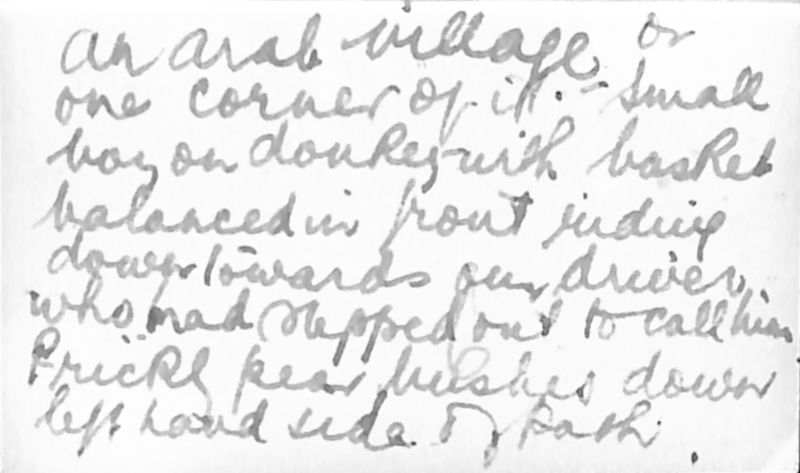 an arab village, or
one corner of it. - Small
boy on donkey with basket
balanced in front riding
down towards our driver
who had stepped out to call him
Prickly pear bushes down
left hand side of path.